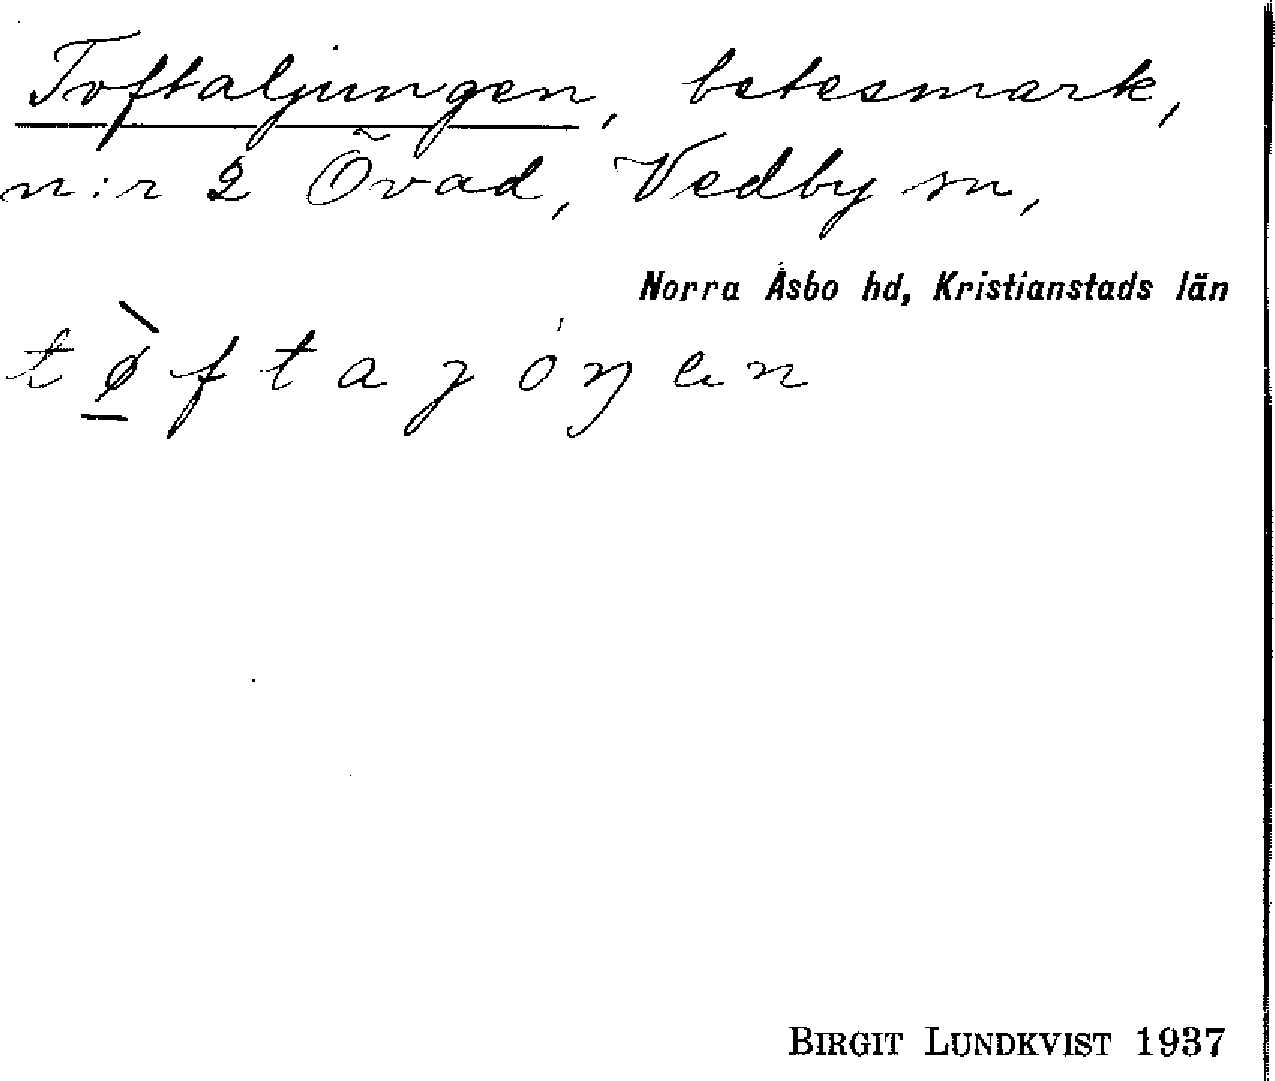 Toftaljungen, betesmark,
n:r 2 Övad, Vedby sn,
Norra Åsbo hd, Kristianstads län
tø̱̀ftajóŋen
BIRGIT LUNDKVIST 1937